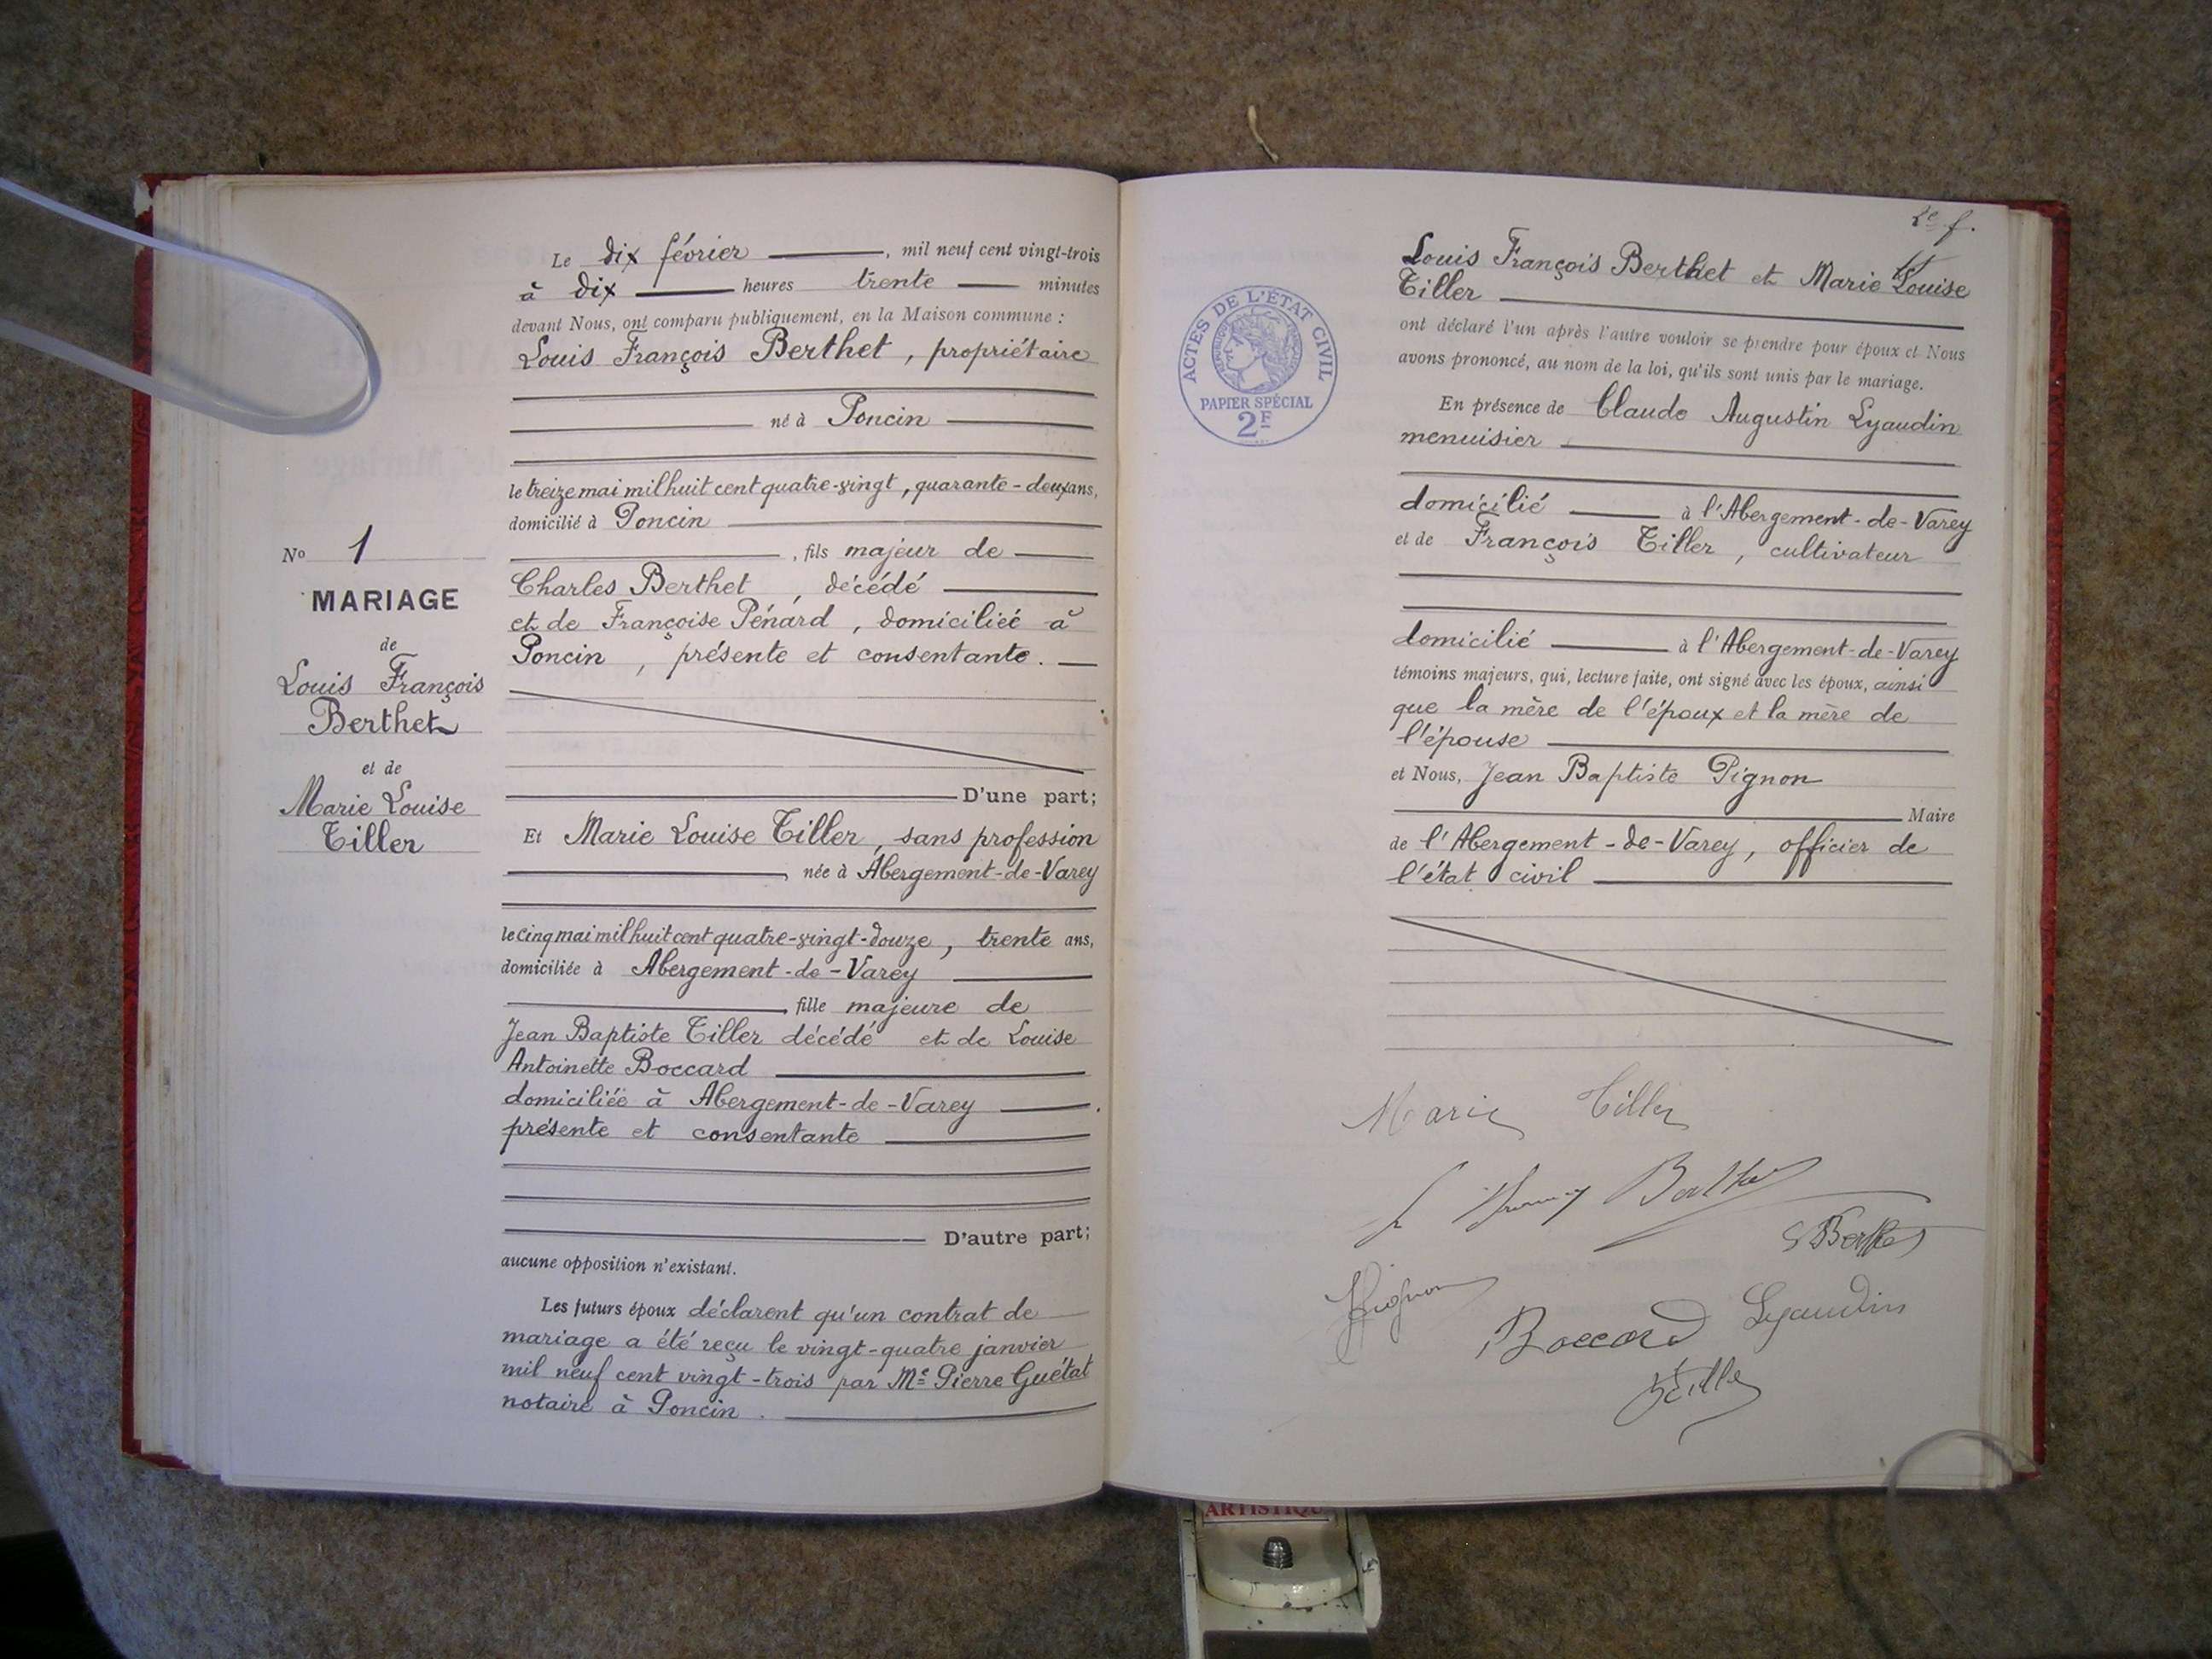 Le dix février , mil neuf cent vingt-trois
à dix heures trente minutes
devant Nous, ont comparu publiquement, en la Maison commune :
Louis François Berthet , propriétaire
né à Poncin
le treize mai mil huit cent quatre-vingt , quarante-deux ans,
domicilié à Poncin
, fils majeur de
Charles Berthet , décédé
et de Françoise Pénard , domiciliée à
Poncin , présente et consentante .
D'une part;
Et Marie Louise Tiller , sans profession
, née à Abergement-de-Varey
le cinq mai mil huit cent quatre-vingt-douze , trente ans,
domiciliée à Abergement-de-Varey
, fille majeure de
Jean Baptiste Tiller décédé et de Louise
Antoinette Boccard
domiciliée à Abergement-de-Varey .
présente et consentante
D'autre part;
aucune opposition n'existant.
Les futurs époux déclarent qu'un contrat de
mariage a été reçu le vingt-quatre janvier
mil neuf cent vingt-trois par Me Pierre Guétat
notaire à Poncin .
No 1
MARIAGE
de
Louis François
Berthet
et de
Marie Louise
Tiller
2e f.
Louis François Berthet et Marie Louise
Tiller
ont déclaré l'un après l'autre vouloir se prendre pour époux et Nous
avons prononcé, au nom de la loi, qu'ils sont unis par le mariage.
En présence de Claude Augustin Lyaudin
menuisier
domicilié à l'Abergement-de-Varey
et de François Tiller , cultivateur
domicilié à l'Abergement-de-Varey
témoins majeurs, qui, lecture faite, ont signé avec les époux, ainsi
que la mère de l'époux et la mère de
l'épouse
et Nous, Jean Baptiste Pignon
Maire
de l'Abergement-de-Varey, officier de
l'état civil
ACTES DE L'ÉTAT CIVIL
RÉPUBLIQUE FRANÇAISE
PAPIER SPÉCIAL
2F
Marie Tiller
Berthet
Berthet
Pignon
Boccard
Lyaudin
Tiller
ARTISTIQU